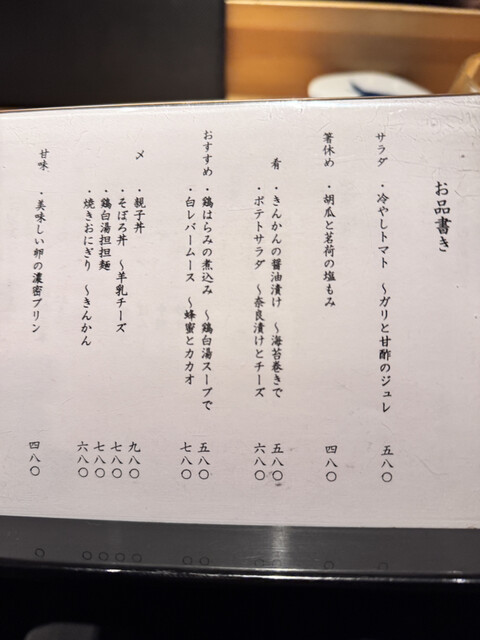 お品書き
サラダ ・冷やしトマト ~ガリと甘酢のジュレ 五八〇
箸休め ・胡瓜と茗荷の塩もみ 四八〇
肴 ・きんかんの醤油漬け ~海苔巻きで 五八〇
・ポテトサラダ ~奈良漬けとチーズ 六八〇
おすすめ ・鶏はらみの煮込み ~鶏白湯スープで 五八〇
・白レバームース ~蜂蜜とカカオ 七八〇
〆 ・親子丼 九八〇
・そぼろ丼 ~羊乳チーズ 七八〇
・鶏白湯担担麺 七八〇
・焼きおにぎり ~きんかん 六八〇
甘味 ・美味しい卵の濃密プリン 四八〇